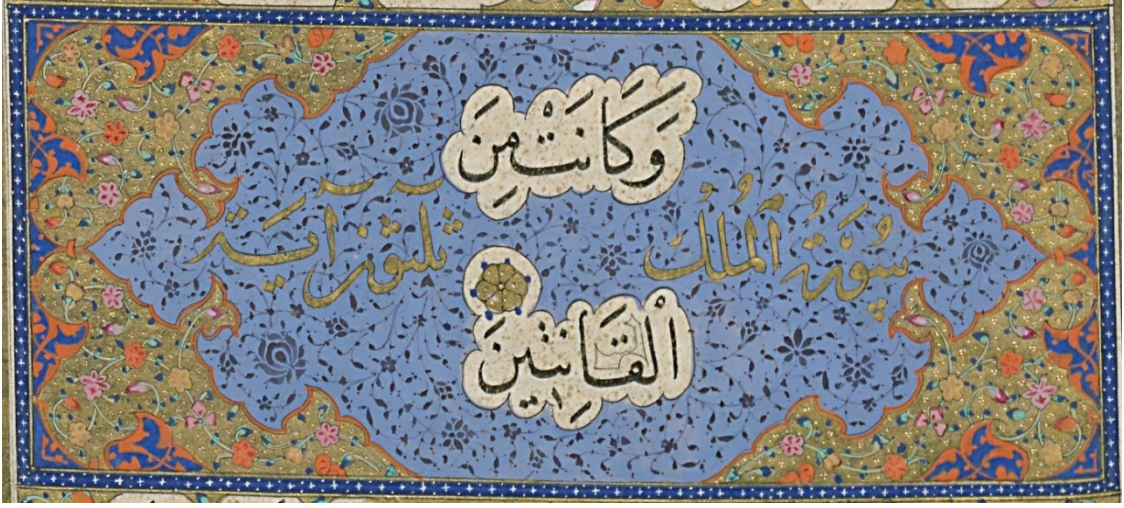 وَكَانَتْ مِنَ
سُورَةُ الْمُلْكُ ثلثون آية
الْقَانِتِينَ